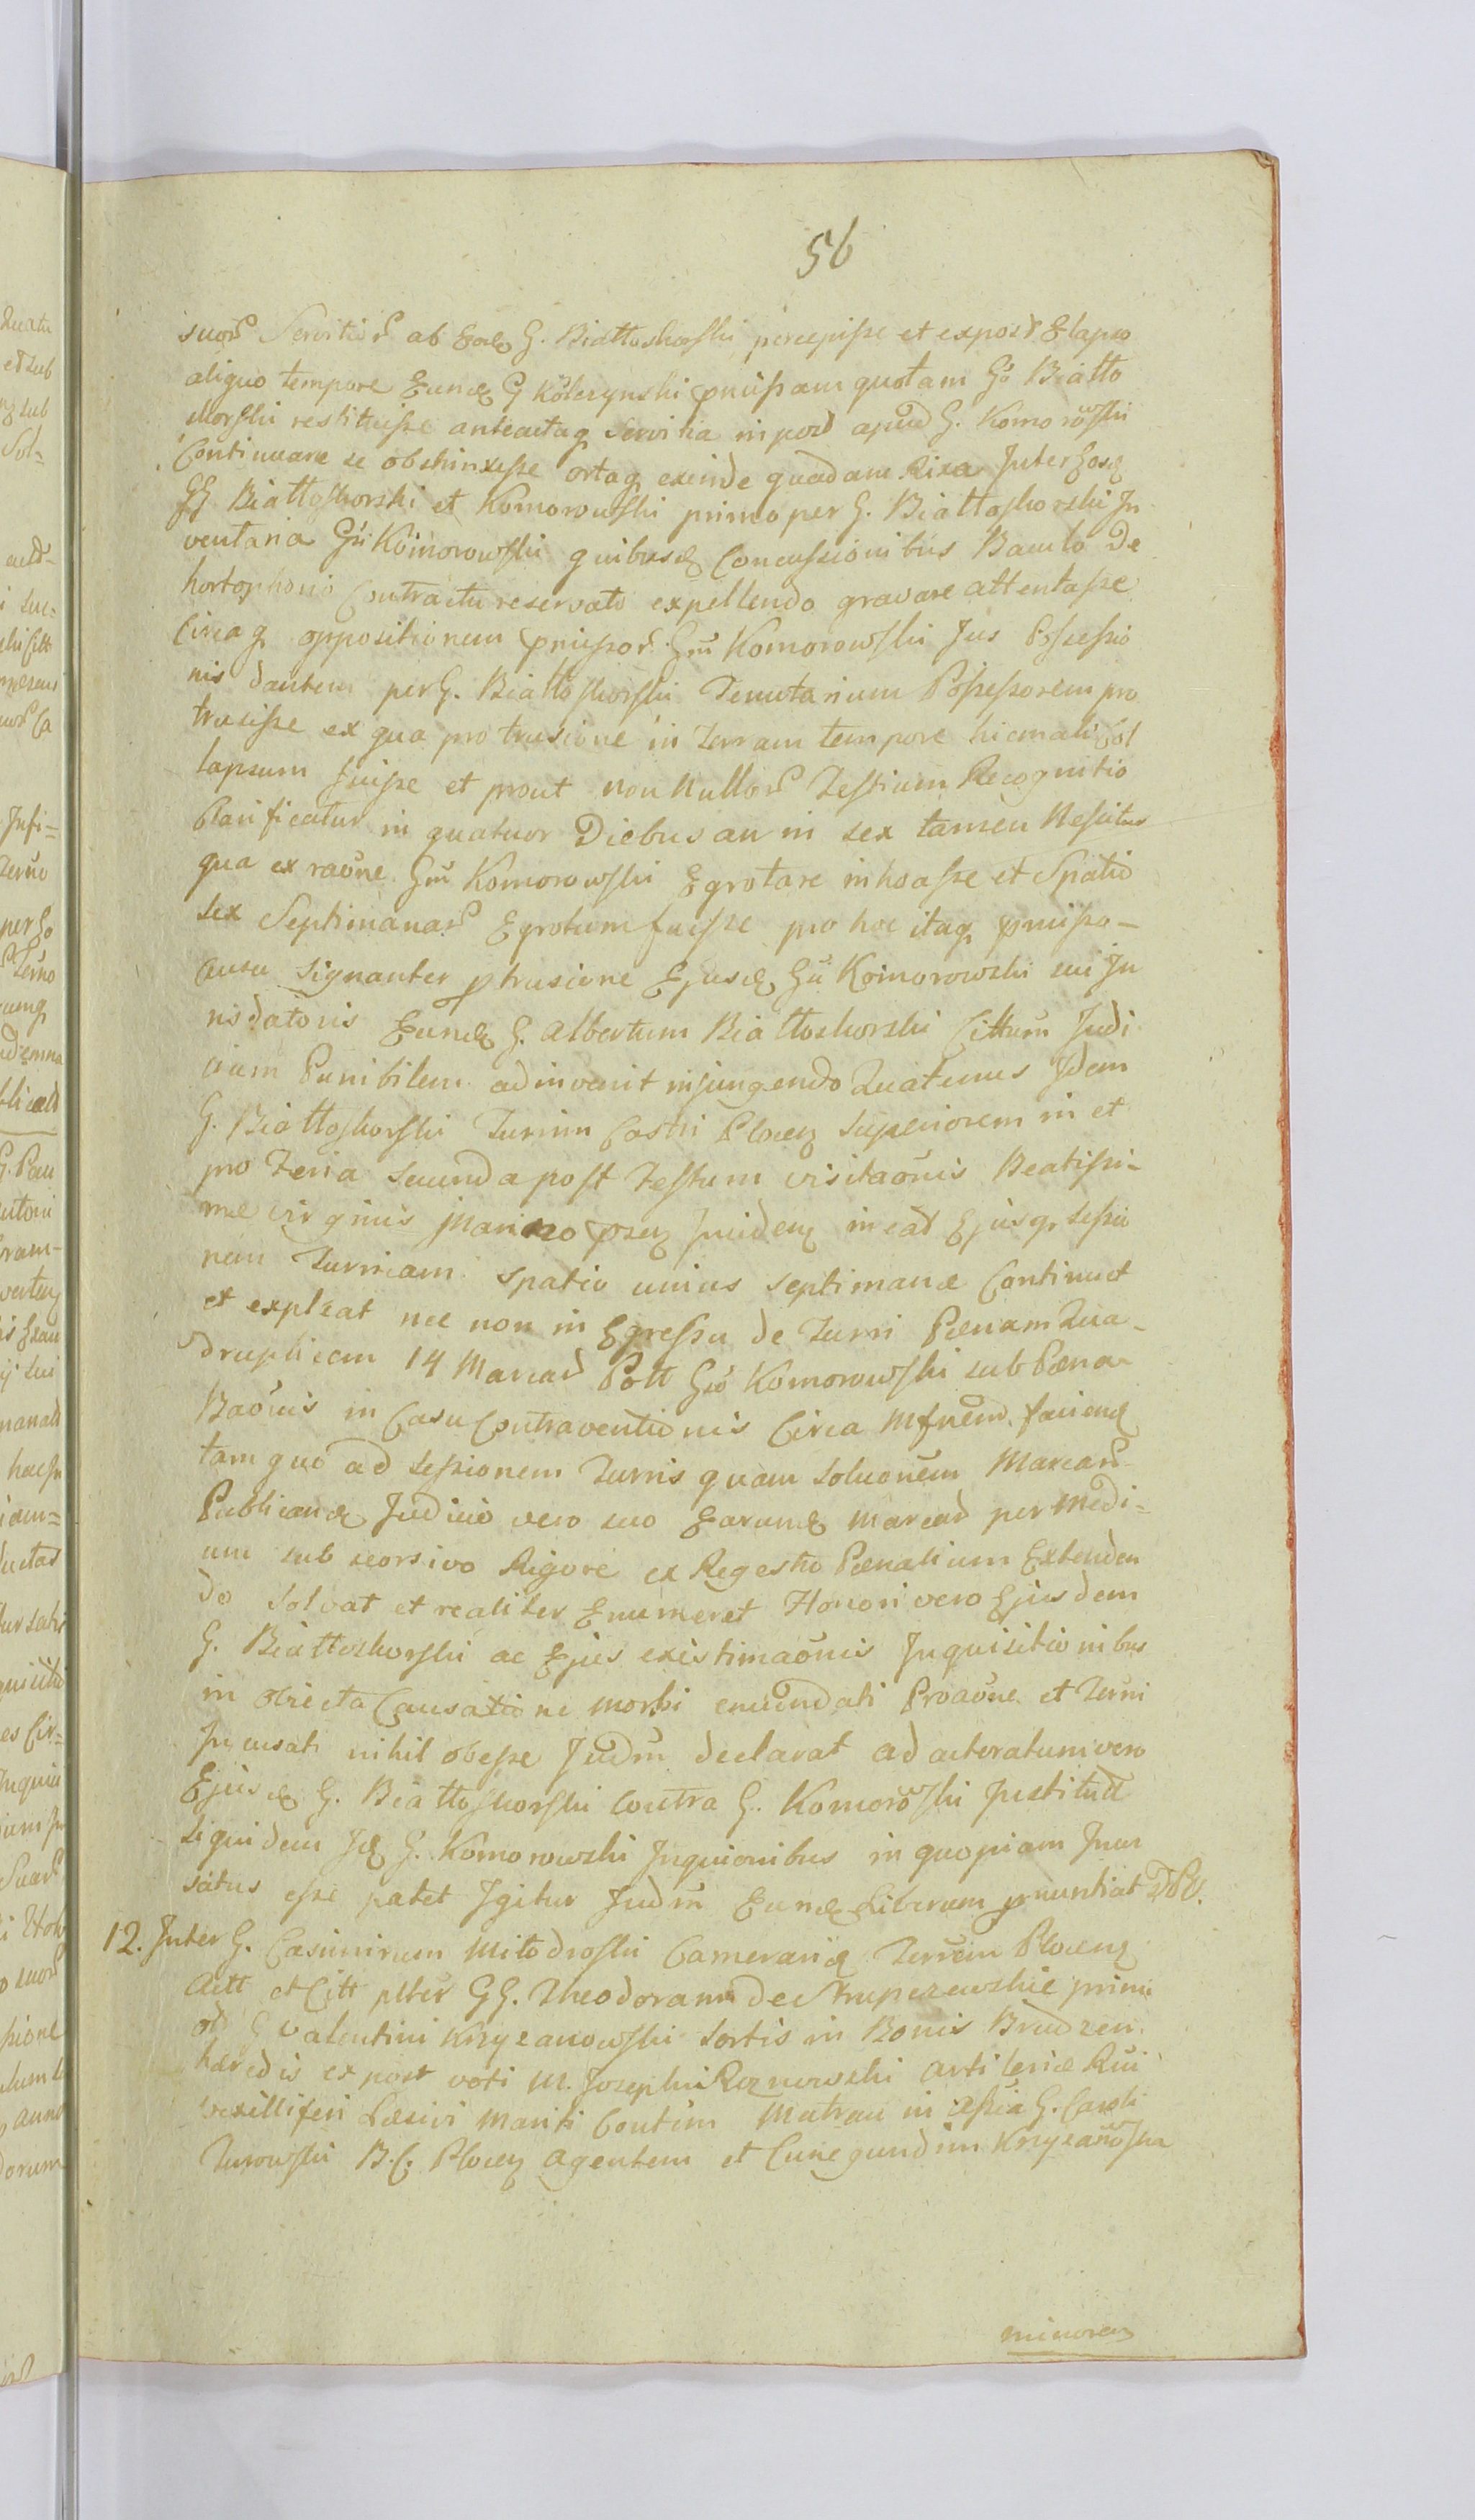 56
suor. Servitior. ab Eod. G. Białłoskorski percepisse et expost Elapso
aliquo tempore Eund. G Kolczynski pmissam quotam Go Biatto
skorski restituisse anteactaq servitia in post apud G. Komorowski
Continuare se obstrinxisse ortaq exinde quadam Rixa Inter Eosd
GG. Biattoskorski et Komorowski primo per G. Biattoskorski In
ventaria Gsi Komorowski quibusd Concussionibus Baculo De
hortophonio Contractu reservato expellendo gravare attentasse
Circaq oppositionem pmissor. Gsi Komorowski Jus Possessio
nis dantem per G. Biattoskorski Tenutarium Possessorem pro
trusisse ex qua protrusione in terram tempore hiemali Col
lapsum fuisse et prout non nullor. Testium Recognitio
Clarificatur in quatuor Diebus an in sex tamen Nescitur
qua ex raone Gsi Komorowski Egrotare inhoasse et Spatio
sex Septimanar. Egrotum fuisse pro hoc itaq pmisso-
ausu signanter ptrusione Ejusd. Gsi Komorowski sui Ju
risdatoris Eund. G. Albertum Biattoskorski Citturn Judi
cium Punibilem adinvenit injungendo Quatenus Idem
G. Biattoskorski Turrim Castri Plocen superiorem in et
pro Feria secunda post Festum visitaonis Beatissi-
mæ virginis Mariæ pxen Inciden ineat Ejusq sessio
nem Turriam spatio unius septimanæ Continuet
et expleat nec non in Egressu de Turri Pænam Qua-
druplicem 14 Marcar Pott Gso Komorowski sub Pæna
Baonis in Casu Contraventionis Circa Mfnem faciend
tam quo ad sessionem Turris quam soluonem Marcar.
Publicand Judicio vero suo Earund. marcar per medi-
um sub seorsivo Rigore ex Regestro Pænalium Extenden
do solvat et realiter Enumeret Honori vero Ejusdem
G. Biattoskorski ac Ejus existimaonis Inquisitionibus
in obiecta Causatione morbi
Incusati nihil obesse Judm declarat ad actoratum vero
Ejusd. G. Biattoskorski Contra G. Komorowski Institut
siquidem Jd. G. Komorowski Inquionibus in quopiam Incu
satus esse patet Igitur Judm Eund. Liberum pnuntiat DPG.
12. Inter G. Casimirum Mitodroski Camerarid Terrein Plocen
Actt et Citt plter GG. Theodoram de Krupczewskie primi
ol. G Valentini Krzyzanowski sortis in Bonis Brudzen.
hæredis expost voti M. Josephi Roznowski artileriæ Rni
vexilliferi Læsivi Mariti Contim Mutran in assia G. Caroli
Turowski B. C. Plocen agentem et Cunegundim Krzyzanoska
minoren